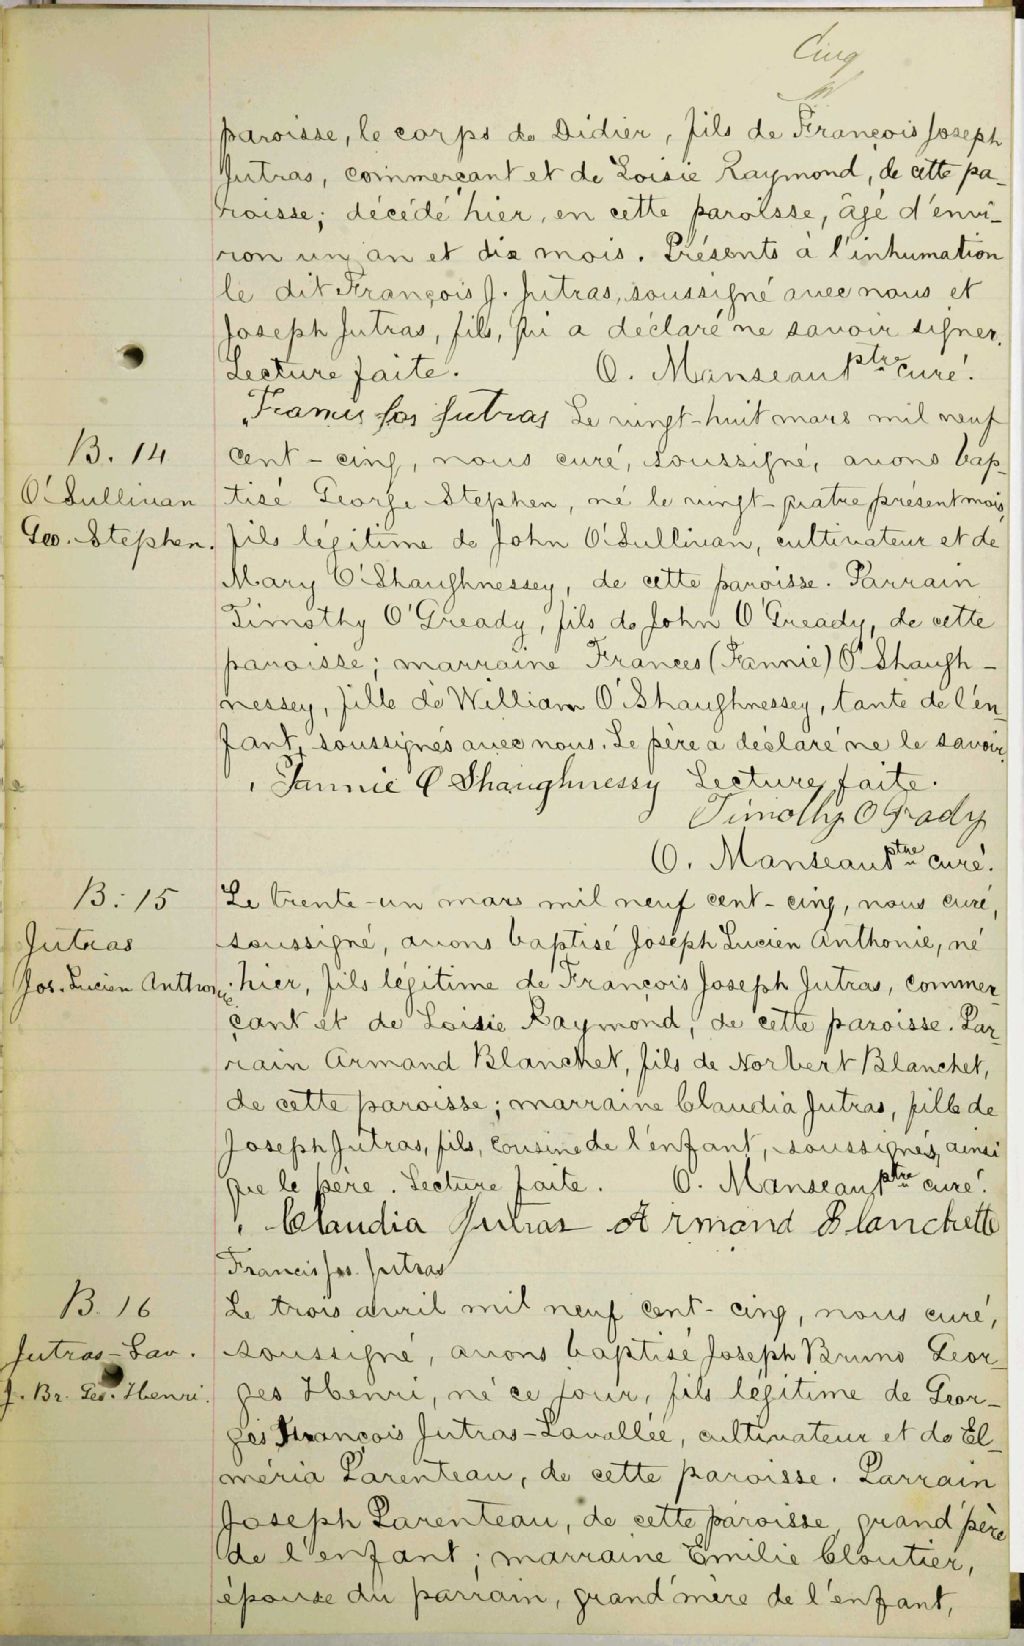 Cinq
paroisse, le corps de Didier, fils de François Joseph
Jutras, commerçant et de Loisie Raymond, de cette pa-
roisse; décédé hier, en cette paroisse, âgé d'envi-
ron un an et dix mois. Présents à l'inhumation
le dit François J. Jutras, soussigné avec nous et
Joseph Jutras, fils, qui a déclaré ne savoir signer.
Lecture faite. O. Manseau ptre curé.
Francis Jos Jutras Le vingt-huit mars mil neuf
B. 14
cent-cinq, nous curé, soussigné, avons bap-
O'Sullivan
tisé George Stephen, né le vingt-quatre présent mois,
Geo. Stephen.
fils légitime de John O'Sullivan, cultivateur et de
Mary O'Shaughnessey, de cette paroisse. Parrain
Timothy O'Gready, fils de John O'Gready, de cette
paroisse; marraine Frances (Fannie) O'Shaugh-
nessey, fille de William O'Shaughnessey, tante de l'en-
fant, soussignés avec nous. Le père a déclaré ne le savoir.
Fannie O Shaughnessy Lecture faite.
Timothy O Grady
O. Manseau ptre curé.
B. 15
Le trente-un mars mil neuf cent-cinq, nous curé,
Jutras
soussigné, avons baptisé Joseph Lucien Anthonie, né
Jos. Lucien Anthonie
hier, fils légitime de François Joseph Jutras, commer-
çant et de Loisie Raymond, de cette paroisse. Par-
rain Armand Blanchet, fils de Norbert Blanchet,
de cette paroisse; marraine Claudia Jutras, fille de
Joseph Jutras, fils, cousine de l'enfant, soussignés, ainsi
que le père. Lecture faite. O. Manseau ptre curé.
Claudia Jutras Armand Blanchette
Francis Jos. Jutras
B. 16
Le trois avril mil neuf cent-cinq, nous curé,
Jutras-Lav.
soussigné, avons baptisé Joseph Bruno Geor-
J. Br. Geo. Henri.
ges Henri, né ce jour, fils légitime de Geor-
ges François Jutras-Lavallée, cultivateur et de El-
méria Parenteau, de cette paroisse. Parrain
Joseph Parenteau, de cette paroisse, grand'père
de l'enfant; marraine Emilie Cloutier,
épouse du parrain, grand'mère de l'enfant,